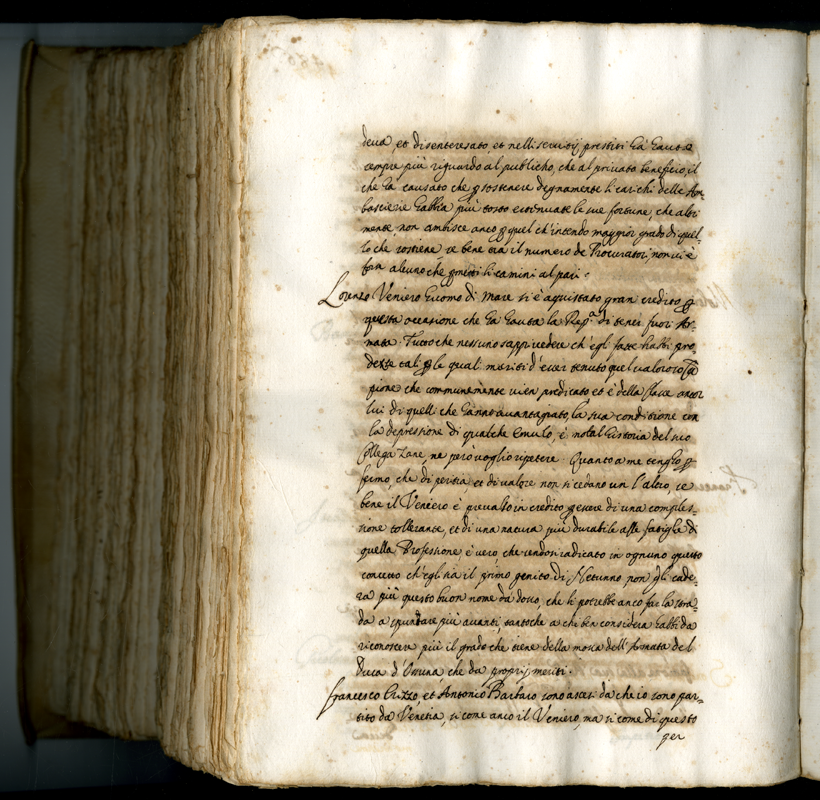 deua, et disenteresato, et nelli seruitij prestiti hà hauuto
sempre più riguardo al publicho, che al priuato beneficio, il
che hà causato che p sostenere degnamente li carichi delle Am-
bascierie habbia più tosto estenuate le sue fortune, che altri
mente, non ambisce anco p quel ch'intendo maggior grado di quel-
lo che sostiene se bene trà il numero de Procuratori, non ui è
forsi alcuno che p meriti li camini al pari.
Lorenzo Veniero huomo di Mare si è aquistato gran credito p
questa occasione che hà hauuta la Rep.ca di tener fuori Ar-
mata. Tuttoche nessuno sappi uedere ch'egli fatte habbi pro-
dezze tali p le quali meriti d'esser tenuto quel valoroso
pione che communemente uien predicato et è della Naue ancor
lui di quelli che hanno auantagiato, la sua conditione con
la depressione di qualche emulo, è nota l'historia del suo
Collega Zane, ne però voglio repetere. Quanto a me tengho p
fermo, che di peritia, et di ualore non si cedano un l'altro, se
bene il Veniero è preualso in credito p essere di una comples-
sione tollerante, et di una natura più durabile alle fatighe di
quella Professione è uero, che rendon radicato in ognuno questo
concetto ch'egli sia il primo genito di Nettunno non gli cade-
rà più questo buon nome da dosso, che li potrebbe anco far la stra-
da a spuntare più auanti, tantoche a chi ben considera habbi da
riconoscere più il grado che tiene della mossa dell'Armata del
Duca d'Ossuna, che da proprij meriti.
Francesco Erizzo, et Antonio Barbaro sono ascesi da che io sono par-
tito da Venetia, si come anco il Veniero, ma si come di questo
per